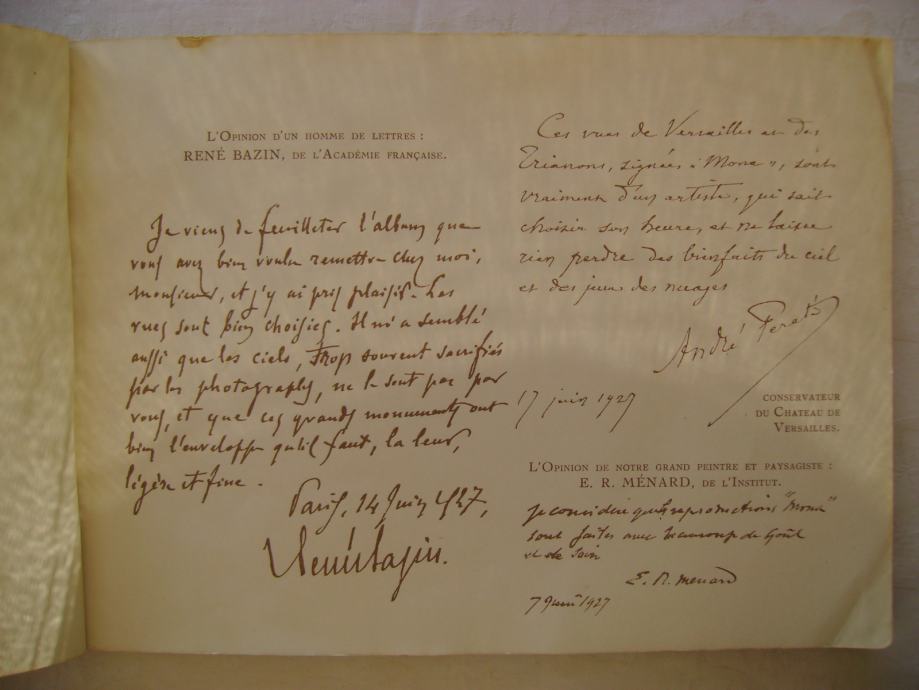 L'Opinion d'un homme de lettres :
RENÉ BAZIN, de l'Académie française.
Je viens de feuilleter l'album que
vous avez bien voulu remettre chez moi,
monsieur, et j'y ai pris plaisir. Les
vues sont bien choisies. Il m'a semblé
aussi que les ciels, trop souvent sacrifiés
par les photographes, ne le sont pas par
vous, et que ces grands monuments ont
bien l'enveloppe qu'il faut, la leur,
légère et fine.
Paris, 14 Juin 1927,
René Bazin.
Ces vues de Versailles et des
Trianons, signées « Mona », sont
vraiment d'un artiste, qui sait
choisir son heure, et ne laisse
rien perdre des bienfaits du ciel
et des jeux des nuages
André Pératé
17 juin 1927
Conservateur
du Chateau de
Versailles.
L'Opinion de notre grand peintre et paysagiste :
E. R. MÉNARD, de l'Institut.
je considère que les reproductions "Mona"
sont faites avec beaucoup de goût
et de soin
E. R. Menard
7 Juin 1927